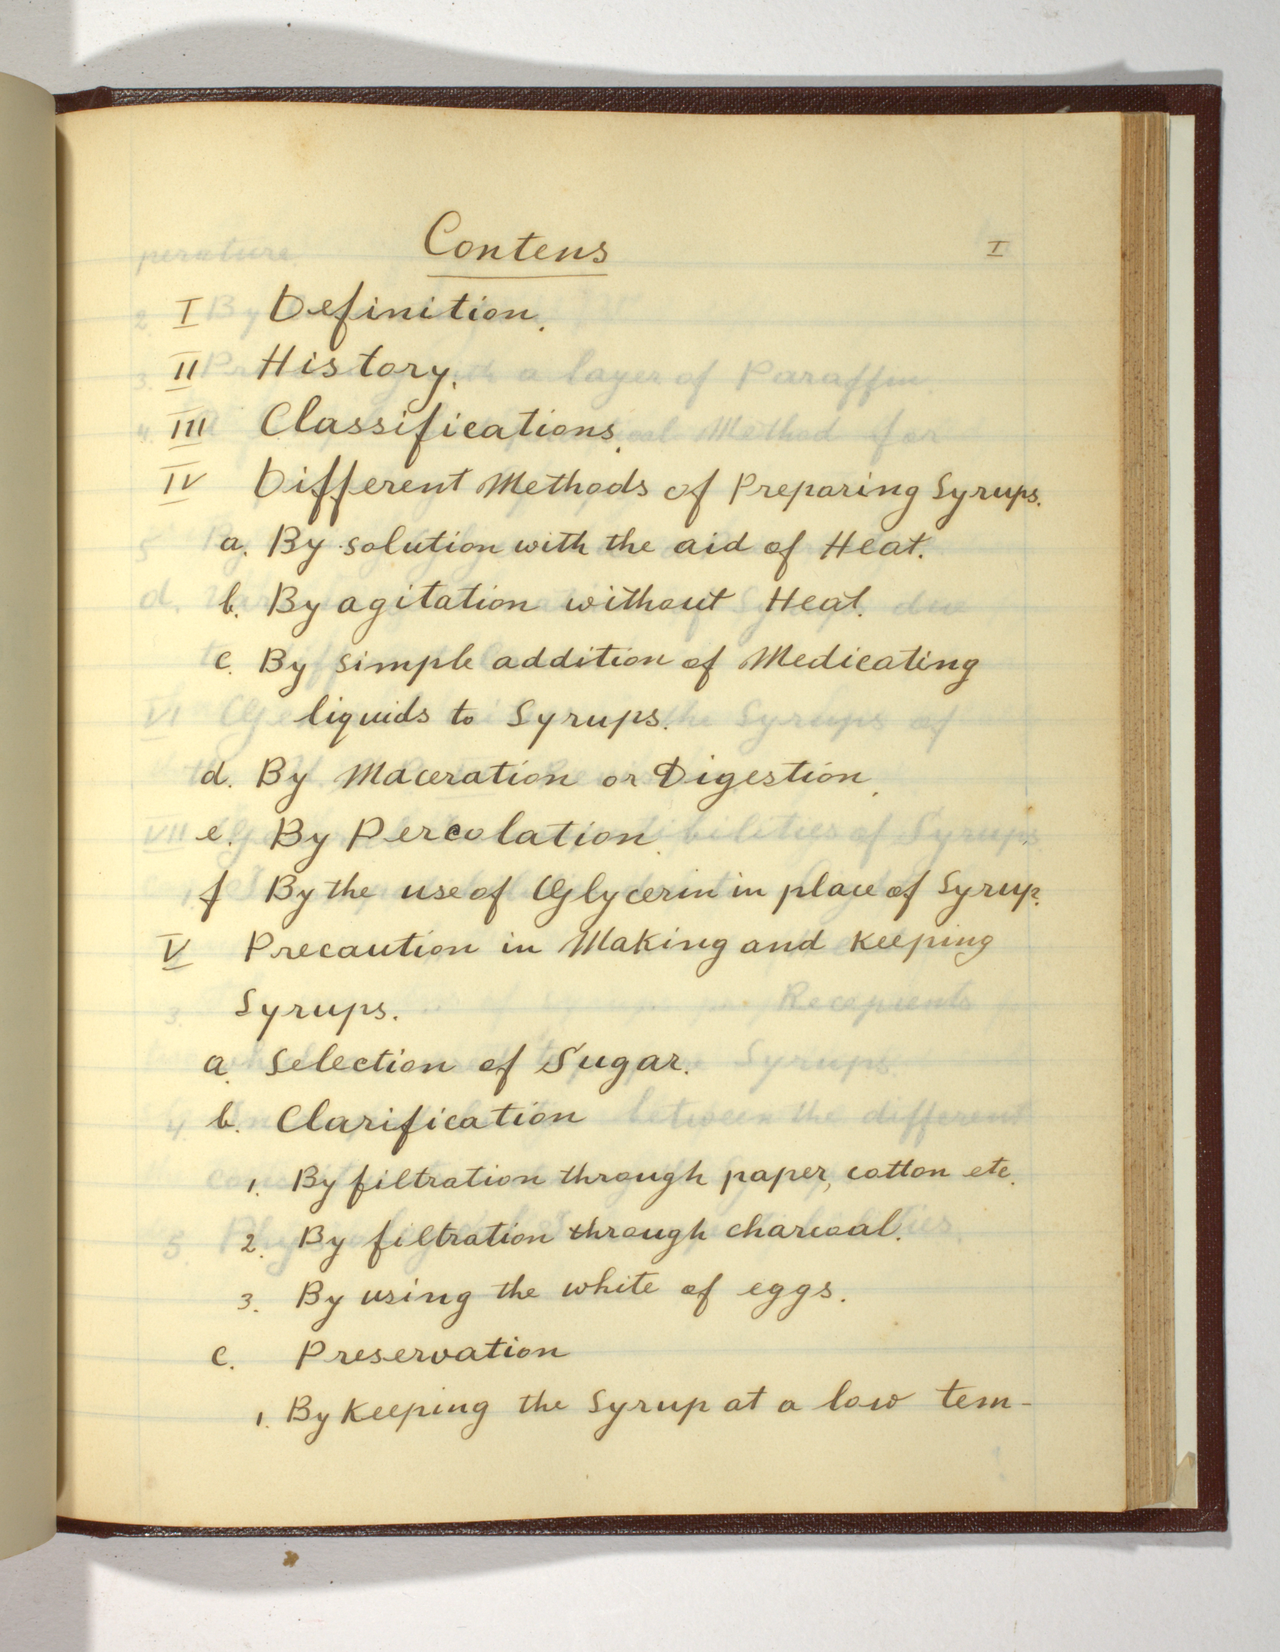 Contens
I
I Definition.
II History.
III Classifications.
IV Different Methods of Preparing Syrups.
a. By solution with the aid of Heat.
b. By agitation without Heat.
c. By simple addition of Medicating
liquids to Syrups.
d. By Maceration or Digestion.
e. By Percolation.
f By the use of Glycerin in place of Syrup.
V Precaution in Making and Keeping
Syrups.
a. Selection of Sugar.
b. Clarification
1. By filtration through paper, cotton etc.
2. By filtration through charcoal.
3. By using the white of eggs.
c. Preservation
1. By Keeping the Syrup at a low tem-